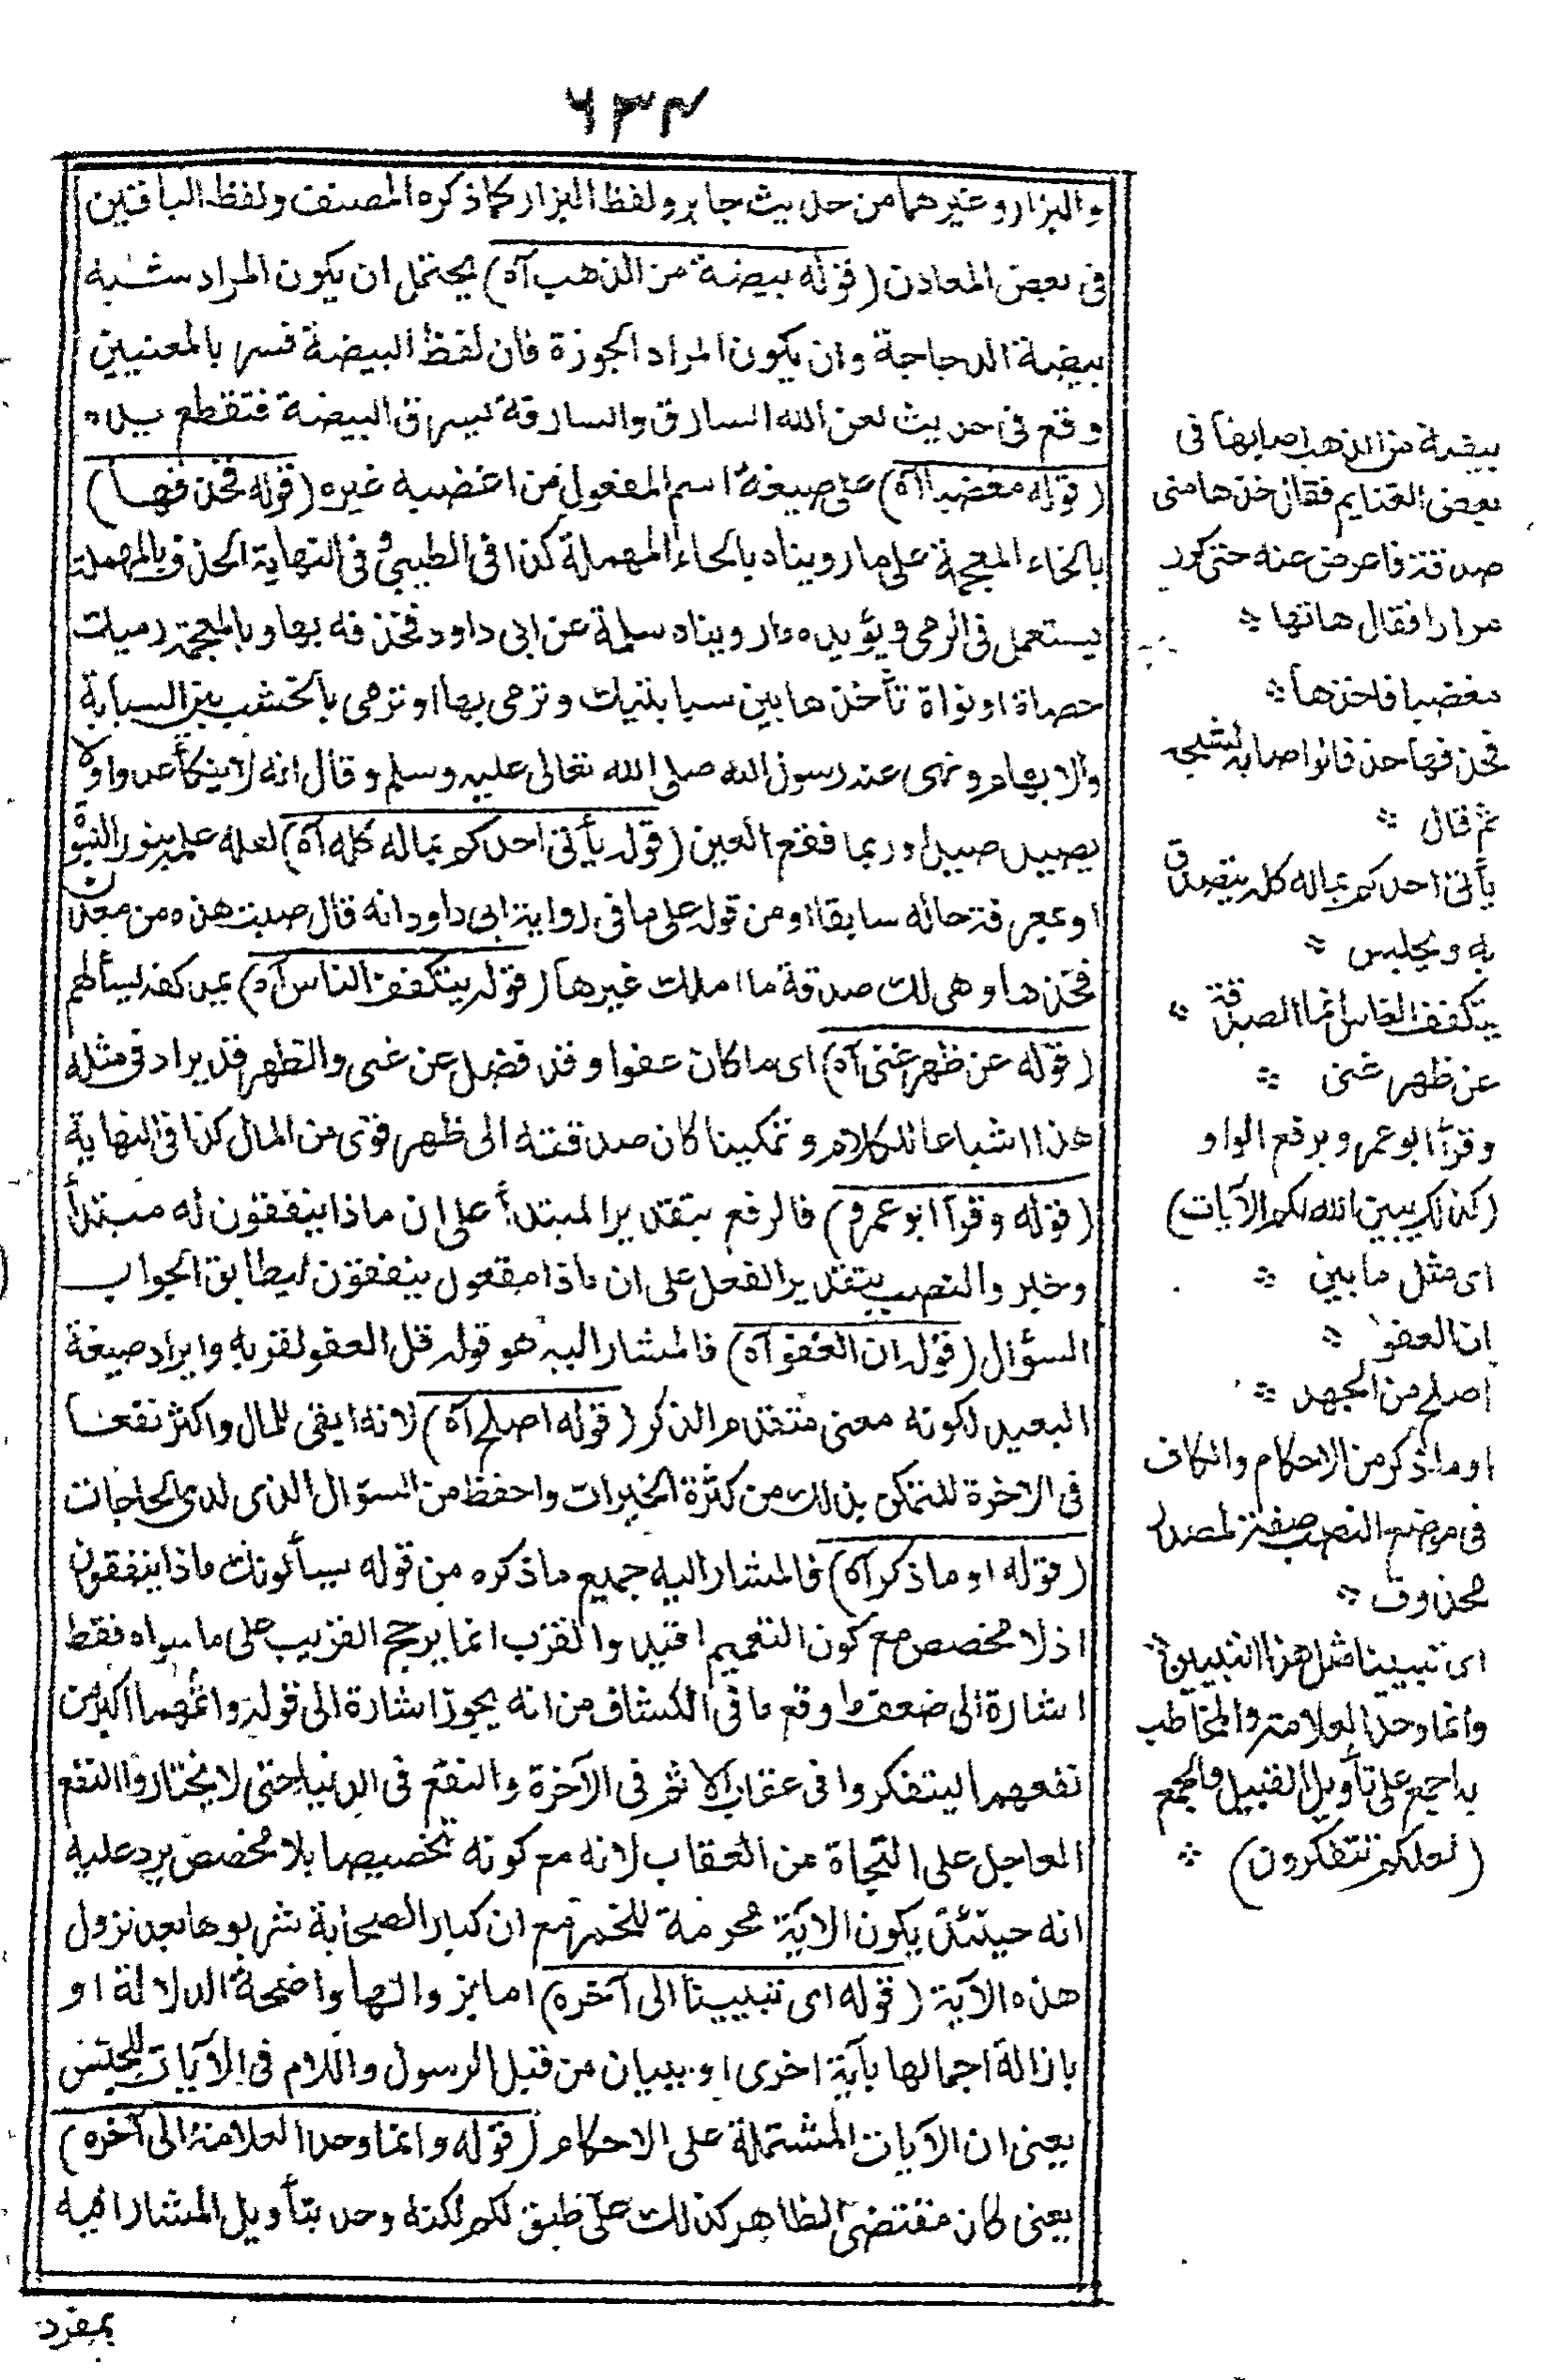 ٦٣٤
والبزار وغيرهما من حديث جابر ولفظ البزار كما ذكره المصنف ولفظ الباقين
فى بعض المعادن (قوله بيضة من الذهب آه) يحتمل ان يكون المراد شبه
بيضة الدجاجة وان يكون المراد الجوزة فان لفظ البيضة فسر بالمعنيين
وقع فى حديث لعن الله السارق والسارقة ليسرق البيضة فتقطع يده
(قوله مغضبا آه) على صيغة اسم المفعول من اغضبه غيره (قوله فخذفها)
بالخاء المعجمة على ما رويناه بالحاء المهملة كذا فى الطيبي وفى النهاية الحذف بالمهملة
يستعمل فى الرمى ويؤيده ما رويناه سلمة عن ابى داود فحذفه بها وبالمعجمة رميك
حصاة او نواة تأخذها بين سبابتيك وترمى بها او ترمى بالخشب بين السبابة
والابهام ونهى عنه رسول الله صلى الله تعالى عليه وسلم وقال انه لا ينكأ عدوا ولا
يصيد صيدا وربما فقع العين (قوله يأتى احدكم بماله كله آه) لعله علم بنور النبوة
او بمعرفة حاله سابقا او من قوله على ما فى رواية ابى داود انه قال صبت هذه من معدن
فخذها وهى لك صدقة ما املك غيرها (قوله يتكفف الناس آه) يمد كفه ليسألهم
(قوله عن ظهر غنى آه) اى ما كان عفوا وقد فضل عن غنى والظهر قد يراد فى مثله
هذا اشباعا للكلام وتمكينا كان صدقته الى ظهر قوى من المال كذا فى النهاية
(قوله وقرأ ابو عمرو) فالرفع بتقدير المبتدأ على ان ماذا ينفقون له مبتدأ
وخبر والنصب بتقدير الفعل على ان ماذا مفعول ينفقون ليطابق الجواب
السؤال (قوله ان العفو آه) فالمشار اليه هو قوله قل العفو لقربه وايراد صيغة
البعيد لكونه معنى متقدم الذكر (قوله اصلح آه) لانه ابقى للمال واكثر نفعا
فى الاخرة للتمكن بذلك من كثرة الخيرات واحفظ من السؤال الذى لدى الحاجات
(قوله او ما ذكر آه) فالمشار اليه جميع ما ذكره من قوله يسألونك ماذا ينفقون
اذ لا مخصص مع كون التعميم افيد والقرب انما يرجح القريب على ما سواه فقط
اشارة الى ضعف ما وقع فى الكشاف من انه يجوز اشارة الى قوله واثمهما اكبر من
نفعهما ليتفكروا فى عقاب الاثم فى الآخرة والنفع فى الدنيا حتى لا يختاروا النفع
العاجل على النجاة من العقاب لانه مع كونه تخصيصا بلا مخصص يرد عليه
انه حينئذ يكون الآية محرمة للخمر مع ان كبار الصحابة شربوها بعد نزول
هذه الآية (قوله اى تبيينا الى آخره) اما بنزولها واضحة الدلالة او
بازالة اجمالها بآية اخرى او ببيان من قبل الرسول واللام فى الآيات للجنس
يعنى ان الآيات المشتملة على الاحكام (قوله وانما وحد العلامة الى آخره)
يعنى كان مقتضى الظاهر كذلك على طبق لكم لكنه وحد بتأويل المشار اليه
بمفرد
بيضة من الذهب اصابها فى
بعض الغنايم فقال خذها منى
صدقة فاعرض عنه حتى كرر
مرارا فقال هاتها
مغضبا فاخذها
فخذفها حذفا لو اصابه لشجه
ثم قال
يأتى احدكم بماله كله يتصدق
به ويجلس
يتكفف الناس انما الصدقة
عن ظهر غنى
وقرأ ابو عمرو برفع الواو
(كذلك يبين الله لكم الآيات)
اى مثل ما بين
ان العفو
اصلح من الجهد
او ما ذكر من الاحكام والكاف
فى موضع النصب صفة لمصدر
محذوف
اى تبيينا مثل هذا التبيين
وانما وحد العلامة والمخاطب
به جمع على تأويل القبيل والجمع
(لعلكم تتفكرون)